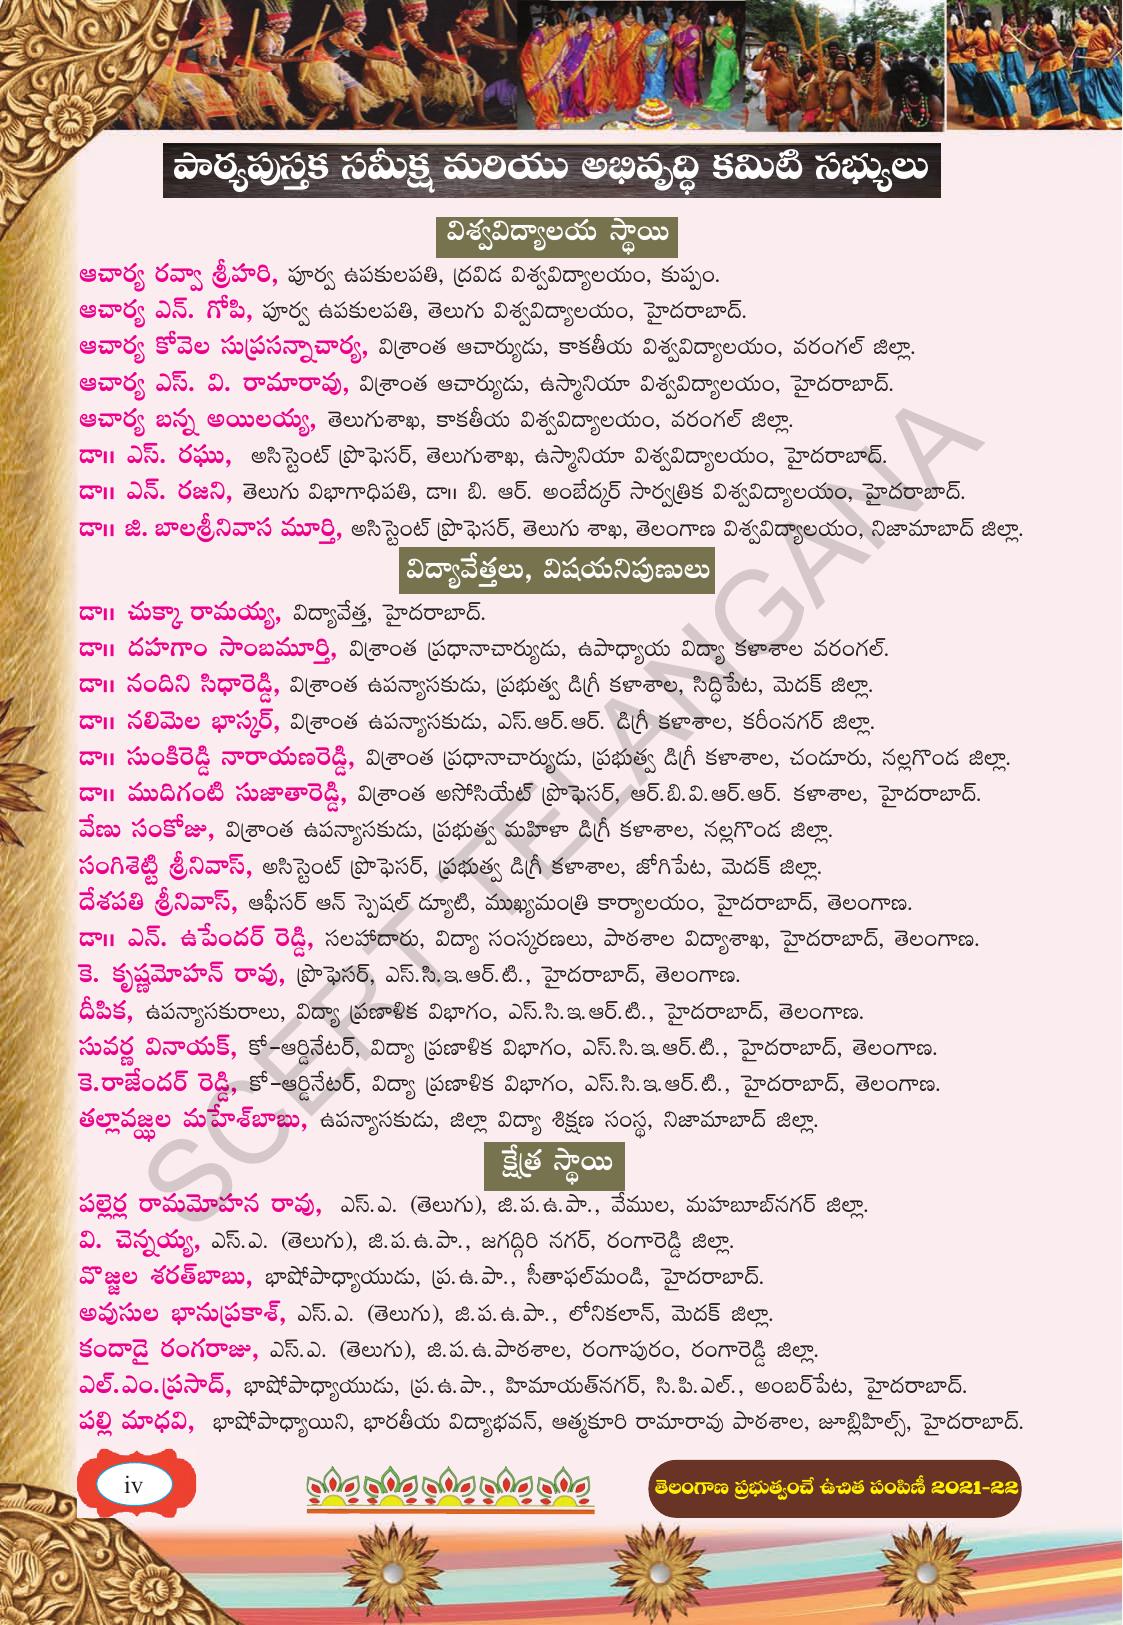 పాఠ్యపుస్తక సమీక్ష మరియు అభివృద్ధి కమిటి సభ్యులు
విశ్వవిద్యాలయ స్థాయి
ఆచార్య రవ్వా శ్రీహరి, పూర్వ ఉపకులపతి, ద్రవిడ విశ్వవిద్యాలయం, కుప్పం.
ఆచార్య ఎన్. గోపి, పూర్వ ఉపకులపతి, తెలుగు విశ్వవిద్యాలయం, హైదరాబాద్.
ఆచార్య కోవెల సుప్రసన్నాచార్య, విశ్రాంత ఆచార్యుడు, కాకతీయ విశ్వవిద్యాలయం, వరంగల్ జిల్లా.
ఆచార్య ఎస్. వి. రామారావు, విశ్రాంత ఆచార్యుడు, ఉస్మానియా విశ్వవిద్యాలయం, హైదరాబాద్.
ఆచార్య బన్న అయిలయ్య, తెలుగుశాఖ, కాకతీయ విశ్వవిద్యాలయం, వరంగల్ జిల్లా.
డా॥ ఎస్. రఘు, అసిస్టెంట్ ప్రొఫెసర్, తెలుగుశాఖ, ఉస్మానియా విశ్వవిద్యాలయం, హైదరాబాద్.
డా॥ ఎన్. రజని, తెలుగు విభాగాధిపతి, డా॥ బి. ఆర్. అంబేద్కర్ సార్వత్రిక విశ్వవిద్యాలయం, హైదరాబాద్.
డా॥ జి. బాలశ్రీనివాస మూర్తి, అసిస్టెంట్ ప్రొఫెసర్, తెలుగు శాఖ, తెలంగాణ విశ్వవిద్యాలయం, నిజామాబాద్ జిల్లా.
విద్యావేత్తలు, విషయనిపుణులు
డా॥ చుక్కా రామయ్య, విద్యావేత్త, హైదరాబాద్.
డా॥ దహగాం సాంబమూర్తి, విశ్రాంత ప్రధానాచార్యుడు, ఉపాధ్యాయ విద్యా కళాశాల వరంగల్.
డా॥ నందిని సిధారెడ్డి, విశ్రాంత ఉపన్యాసకుడు, ప్రభుత్వ డిగ్రీ కళాశాల, సిద్ధిపేట, మెదక్ జిల్లా.
డా॥ నలిమెల భాస్కర్, విశ్రాంత ఉపన్యాసకుడు, ఎస్.ఆర్.ఆర్. డిగ్రీ కళాశాల, కరీంనగర్ జిల్లా.
డా॥ సుంకిరెడ్డి నారాయణరెడ్డి, విశ్రాంత ప్రధానాచార్యుడు, ప్రభుత్వ డిగ్రీ కళాశాల, చండూరు, నల్లగొండ జిల్లా.
డా॥ ముదిగంటి సుజాతారెడ్డి, విశ్రాంత అసోసియేట్ ప్రొఫెసర్, ఆర్.బి.వి.ఆర్.ఆర్. కళాశాల, హైదరాబాద్.
వేణు సంకోజు, విశ్రాంత ఉపన్యాసకుడు, ప్రభుత్వ మహిళా డిగ్రీ కళాశాల, నల్లగొండ జిల్లా.
సంగిశెట్టి శ్రీనివాస్, అసిస్టెంట్ ప్రొఫెసర్, ప్రభుత్వ డిగ్రీ కళాశాల, జోగిపేట, మెదక్ జిల్లా.
దేశపతి శ్రీనివాస్, ఆఫీసర్ ఆన్ స్పెషల్ డ్యూటి, ముఖ్యమంత్రి కార్యాలయం, హైదరాబాద్, తెలంగాణ.
డా॥ ఎన్. ఉపేందర్ రెడ్డి, సలహాదారు, విద్యా సంస్కరణలు, పాఠశాల విద్యాశాఖ, హైదరాబాద్, తెలంగాణ.
కె. కృష్ణమోహన్ రావు, ప్రొఫెసర్, ఎస్.సి.ఇ.ఆర్.టి., హైదరాబాద్, తెలంగాణ.
దీపిక, ఉపన్యాసకురాలు, విద్యా ప్రణాళిక విభాగం, ఎస్.సి.ఇ.ఆర్.టి., హైదరాబాద్, తెలంగాణ.
సువర్ణ వినాయక్, కో-ఆర్డినేటర్, విద్యా ప్రణాళిక విభాగం, ఎస్.సి.ఇ.ఆర్.టి., హైదరాబాద్, తెలంగాణ.
కె.రాజేందర్ రెడ్డి, కో-ఆర్డినేటర్, విద్యా ప్రణాళిక విభాగం, ఎస్.సి.ఇ.ఆర్.టి., హైదరాబాద్, తెలంగాణ.
తల్లావజ్ఝల మహేశ్‌బాబు, ఉపన్యాసకుడు, జిల్లా విద్యా శిక్షణ సంస్థ, నిజామాబాద్ జిల్లా.
క్షేత్ర స్థాయి
పల్లెర్ల రామమోహన రావు, ఎస్.ఎ. (తెలుగు), జి.ప.ఉ.పా., వేముల, మహబూబ్‌నగర్ జిల్లా.
వి. చెన్నయ్య, ఎస్.ఎ. (తెలుగు), జి.ప.ఉ.పా., జగద్గిరి నగర్, రంగారెడ్డి జిల్లా.
వొజ్జల శరత్‌బాబు, భాషోపాధ్యాయుడు, ప్ర.ఉ.పా., సీతాఫల్‌మండి, హైదరాబాద్.
అవుసుల భానుప్రకాశ్, ఎస్.ఎ. (తెలుగు), జి.ప.ఉ.పా., లోనికలాన్, మెదక్ జిల్లా.
కందాడై రంగరాజు, ఎస్.ఎ. (తెలుగు), జి.ప.ఉ.పాఠశాల, రంగాపురం, రంగారెడ్డి జిల్లా.
ఎల్.ఎం.ప్రసాద్, భాషోపాధ్యాయుడు, ప్ర.ఉ.పా., హిమాయత్‌నగర్, సి.పి.ఎల్., అంబర్‌పేట, హైదరాబాద్.
పల్లి మాధవి, భాషోపాధ్యాయిని, భారతీయ విద్యాభవన్, ఆత్మకూరి రామారావు పాఠశాల, జూబ్లిహిల్స్, హైదరాబాద్.
SCERT TELANGANA
iv
తెలంగాణ ప్రభుత్వంచే ఉచిత పంపిణీ 2021-22